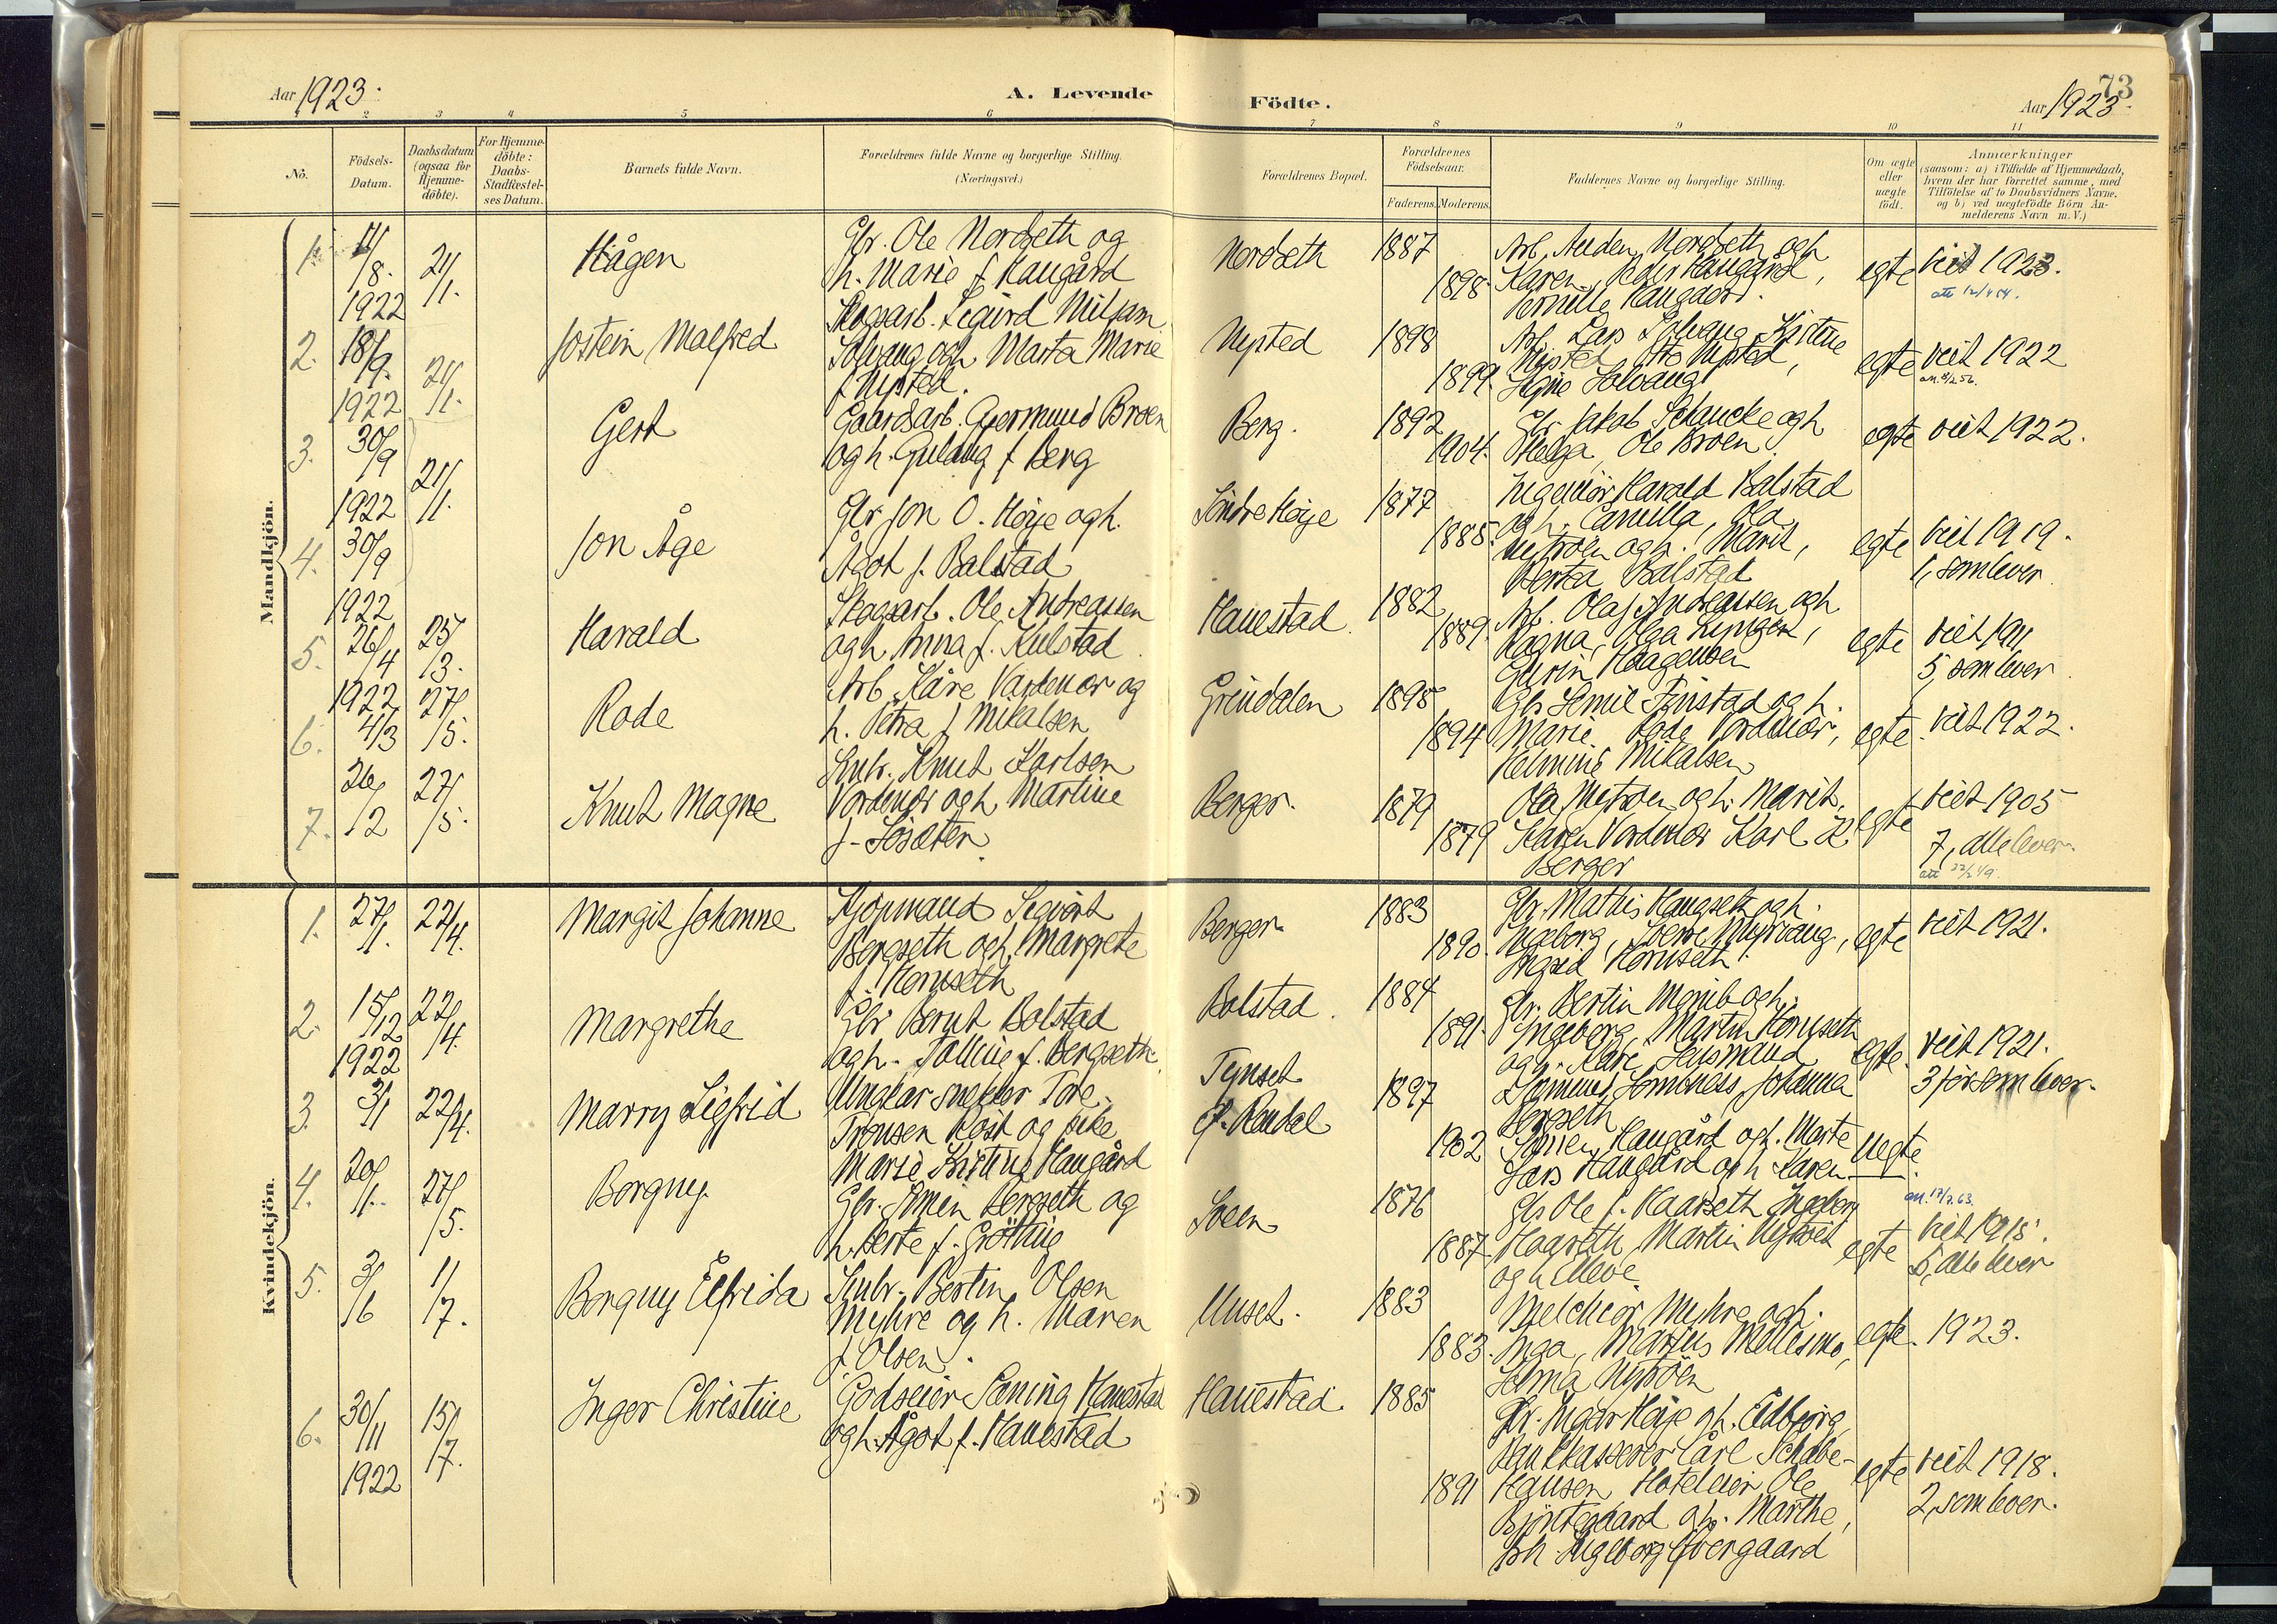 Aar 1923.
A. Levende
Födte.
73
Aar 1923.
1 2 3 4 5 6 7 8 9 10 11
No.
Födsels-
Datum.
Daabsdatum
(ogsaa for
Hjemme-
döbte).
For Hjemme-
döbte:
Daabs-
Stadfæstel-
ses Datum.
Barnets fulde Navn.
Forældrenes fulde Navne og borgerlige Stilling.
(Næringsvei.)
Forældrenes Bopæl.
Forældrenes
Födselsaar.
Faderens. Moderens.
Faddernes Navne og borgerlige Stilling.
Om ægte
eller
uægte
födt.
Anmærkninger
(saasom: a) i Tilfælde af Hjemmedaab,
hvem der har forrettet samme, med
Tilföielse af to Daabsvidners Navne,
og b) ved uægtefödte Börn An-
melderens Navn m. V.)
Mandkjön.
1. 11/8. 1922 21/1.
Hågen
Gbr. Ole Nordseth og
h. Marie f. Haugård
Nordseth 1887 1898.
Arb. Auden Nordseth og h
Karen, Peder Haugård,
Pernille Haugaard.
egte viet 1923.
2. 18/9. 1922 21/1.
Jostein Malfred
Skogsarb. Sigurd
Solvang og h. Marta Marie
f. Nysted.
Nysted 1898 1899.
Arb. Lars Solvang, Kirstine
Nysted, Nysted,
Signe Solvang
egte viet 1922
3. 30/9 1922 21/1.
Gert
Gaardsarb. Gjermund Broen
og h. Gulaug f. Berg
Berg. 1892 1904.
Gbr. Jakob Schancke og h
Helga, Ole Broen.
egte viet 1922.
4. 30/9 1922
Jon Åge
Gbr Jon O. Høye og h.
Ågot f. Balstad
Søndre Høye 1877 1885.
Ingeniør Harald Balstad
og h. Camilla, Ola
Nystroen og h. Marit,
Berta Balstad
egte viet 1919.
1, som lever.
5. 26/4 1922 25/3.
Harald
Skogsarb. Ole Andreassen
og h. Anna f. Kulstad.
Hanestad. 1882 1889.
Arb. Olaf Andreassen og h
Magna, Olga Lyngen,
Haagensen
egte viet 1911
5, som lever.
6. 4/3 27/5.
Rode
Arb. Kåre Vardenær og
h. Petra f. Mikalsen
Grindalen 1898 1894
Gbr Emil Finstad og h.
Marie. Rode Vordenær,
Helmine Mikalsen
egte. viet 1922.
7. 26/12 27/5.
Knut Magne
Snbr. Knut Karlsen
Vordenær og h. Martine
f. Søsæter.
Berger. 1879 1879
Ola Nystroen og h. Marit,
Karen Vordenær Karl K.
Berger
egte viet 1905
7, alle lever.
Kvindekjön.
1. 27/1. 22/4.
Margit Johanne
Kjøpmand Sigvart
Bergseth og h. Margrete
f. Hornseth
Berger 1883 1890.
Gbr. Mathis Haugseth og h.
Ingeborg, Sverre Myrvang,
Ingrid Hornseth.
egte viet 1921.
2. 15/12 1922 22/4.
Margrethe
Gbr Bernt Bolstad
og h. Talline f. Bergseth.
Bolstad. 1884 1891.
Gbr. Bertin og h.
Ingeborg, Martin Hornseth
og h. Kåre
egte. viet 1921.
3 før som lever.
3. 3/1 22/4.
Marry Sigfrid
Ungkar snekker Tore
Tronsen Røst og pike
Marie Kristine Haugård
Tynset
Ø. Rendal
1897 1902
Johanna
Bergseth
Simen Haugård og h. Marte
Lars Haugård og h Karen
uegte
4. 20/1. 27/5.
Borgny.
Gbr. Simen Bergseth og
h. Berte f. Grøtting
Sveen 1876 1887.
Gbr Ole J. Haarseth Ingeborg
Haarseth, Martin Nystøet
og h Elleve.
egte viet 1915.
5, alle lever
5. 3/6 1/7.
Borgny Elfrida
Snbr. Bertin Olsen
Myhre og h. Maren
f. Olsen.
Unset. 1883 1883.
Melchior Myhre og h.
Inga, Marius Mellesmo,
Selma Nystøen
egte. 1923.
6. 30/11 1922 15/7.
Inger Christine
Godseier Hanestad
og h. Ågot f. Hanestad
Hanestad 1885 1891
Gbr. Ingar Høye og h. Edbjørg,
Bankkasserer Carl Schøbe-
Hansen Hoteleier Ole
Bjøntegaard og h. Marthe,
Ingeborg Øvergaard
egte viet 1918.
2, som lever.